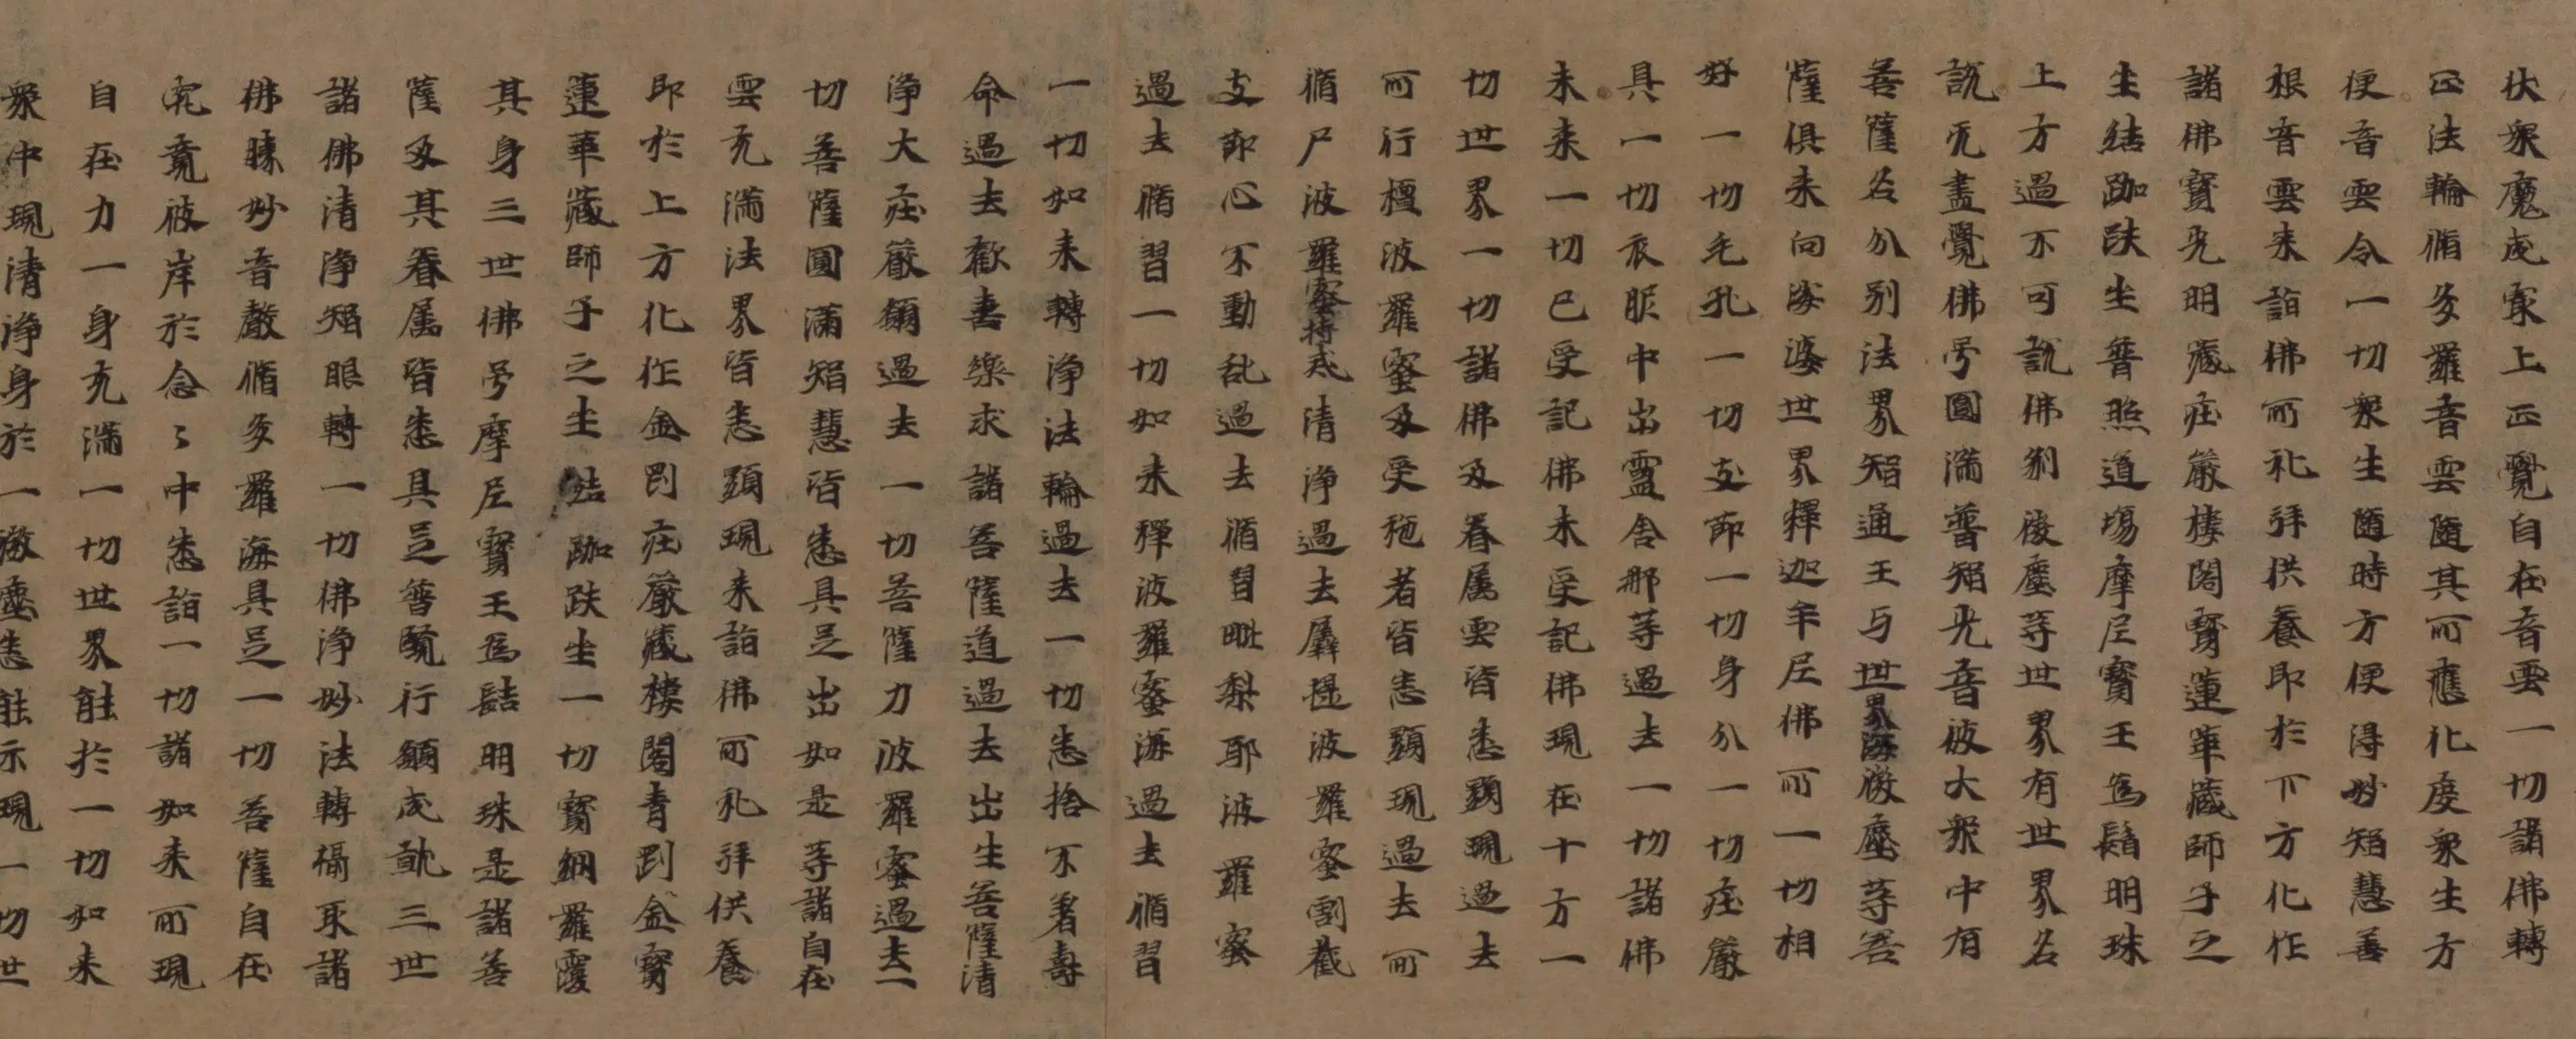 伏衆魔成寂上正覺自在音雲一切諸佛轉
正法輪脩多羅音雲随其所應化度衆生方
便音雲令一切衆生随時方便得妙智慧善
根音雲来詣佛所礼拜供養即於下方化作
諸佛寳光明藏莊嚴樓閣寳蓮華藏師子之
坐結跏趺坐普照道場摩尼寳王為髻明珠
上方過不可說佛刹微塵等世界有世界名
說无盡覺佛号圓滿普智光音彼大衆中有
菩薩名分別法界智通王与世界海微塵等菩
薩俱来向娑婆世界釋迦牟尼佛所一切相
好一切毛孔一切支節一切身分一切莊嚴
具一切衣服中出盧舍那等過去一切諸佛
未来一切已受記佛未受記佛現在十方一
切世界一切諸佛及眷属雲皆悉顯現過去
所行檀波羅蜜及受施者皆悉顯現過去所
脩尸波羅蜜持戒清淨過去羼提波羅蜜割截
支節心不動乱過去脩習毗梨耶波羅蜜
過去脩習一切如来禪波羅蜜海過去脩習
一切如来轉淨法輪過去一切悉捨不著壽
命過去歡喜樂求諸菩薩道過去出生菩薩清
淨大莊嚴願過去一切菩薩力波羅蜜過去一
切菩薩圓滿智慧皆悉具足出如是等諸自在
雲充滿法界皆悉顯現来詣佛所礼拜供養
即於上方化作金剛莊嚴藏樓閣青剛金寳
蓮華藏師子之坐結跏趺坐一切寳網羅覆
其身三世佛号摩尼寳王為髻明珠是諸菩
薩及其眷属皆悉具足普賢行願成就三世
諸佛清淨智眼轉一切佛淨妙法轉攝取諸
佛勝妙音聲脩多羅海具足一切菩薩自在
究竟彼岸於念〻中悉詣一切諸如来所現
自在力一身充滿一切世界能於一切如来
衆中現清淨身於一微塵悉能示現一切世